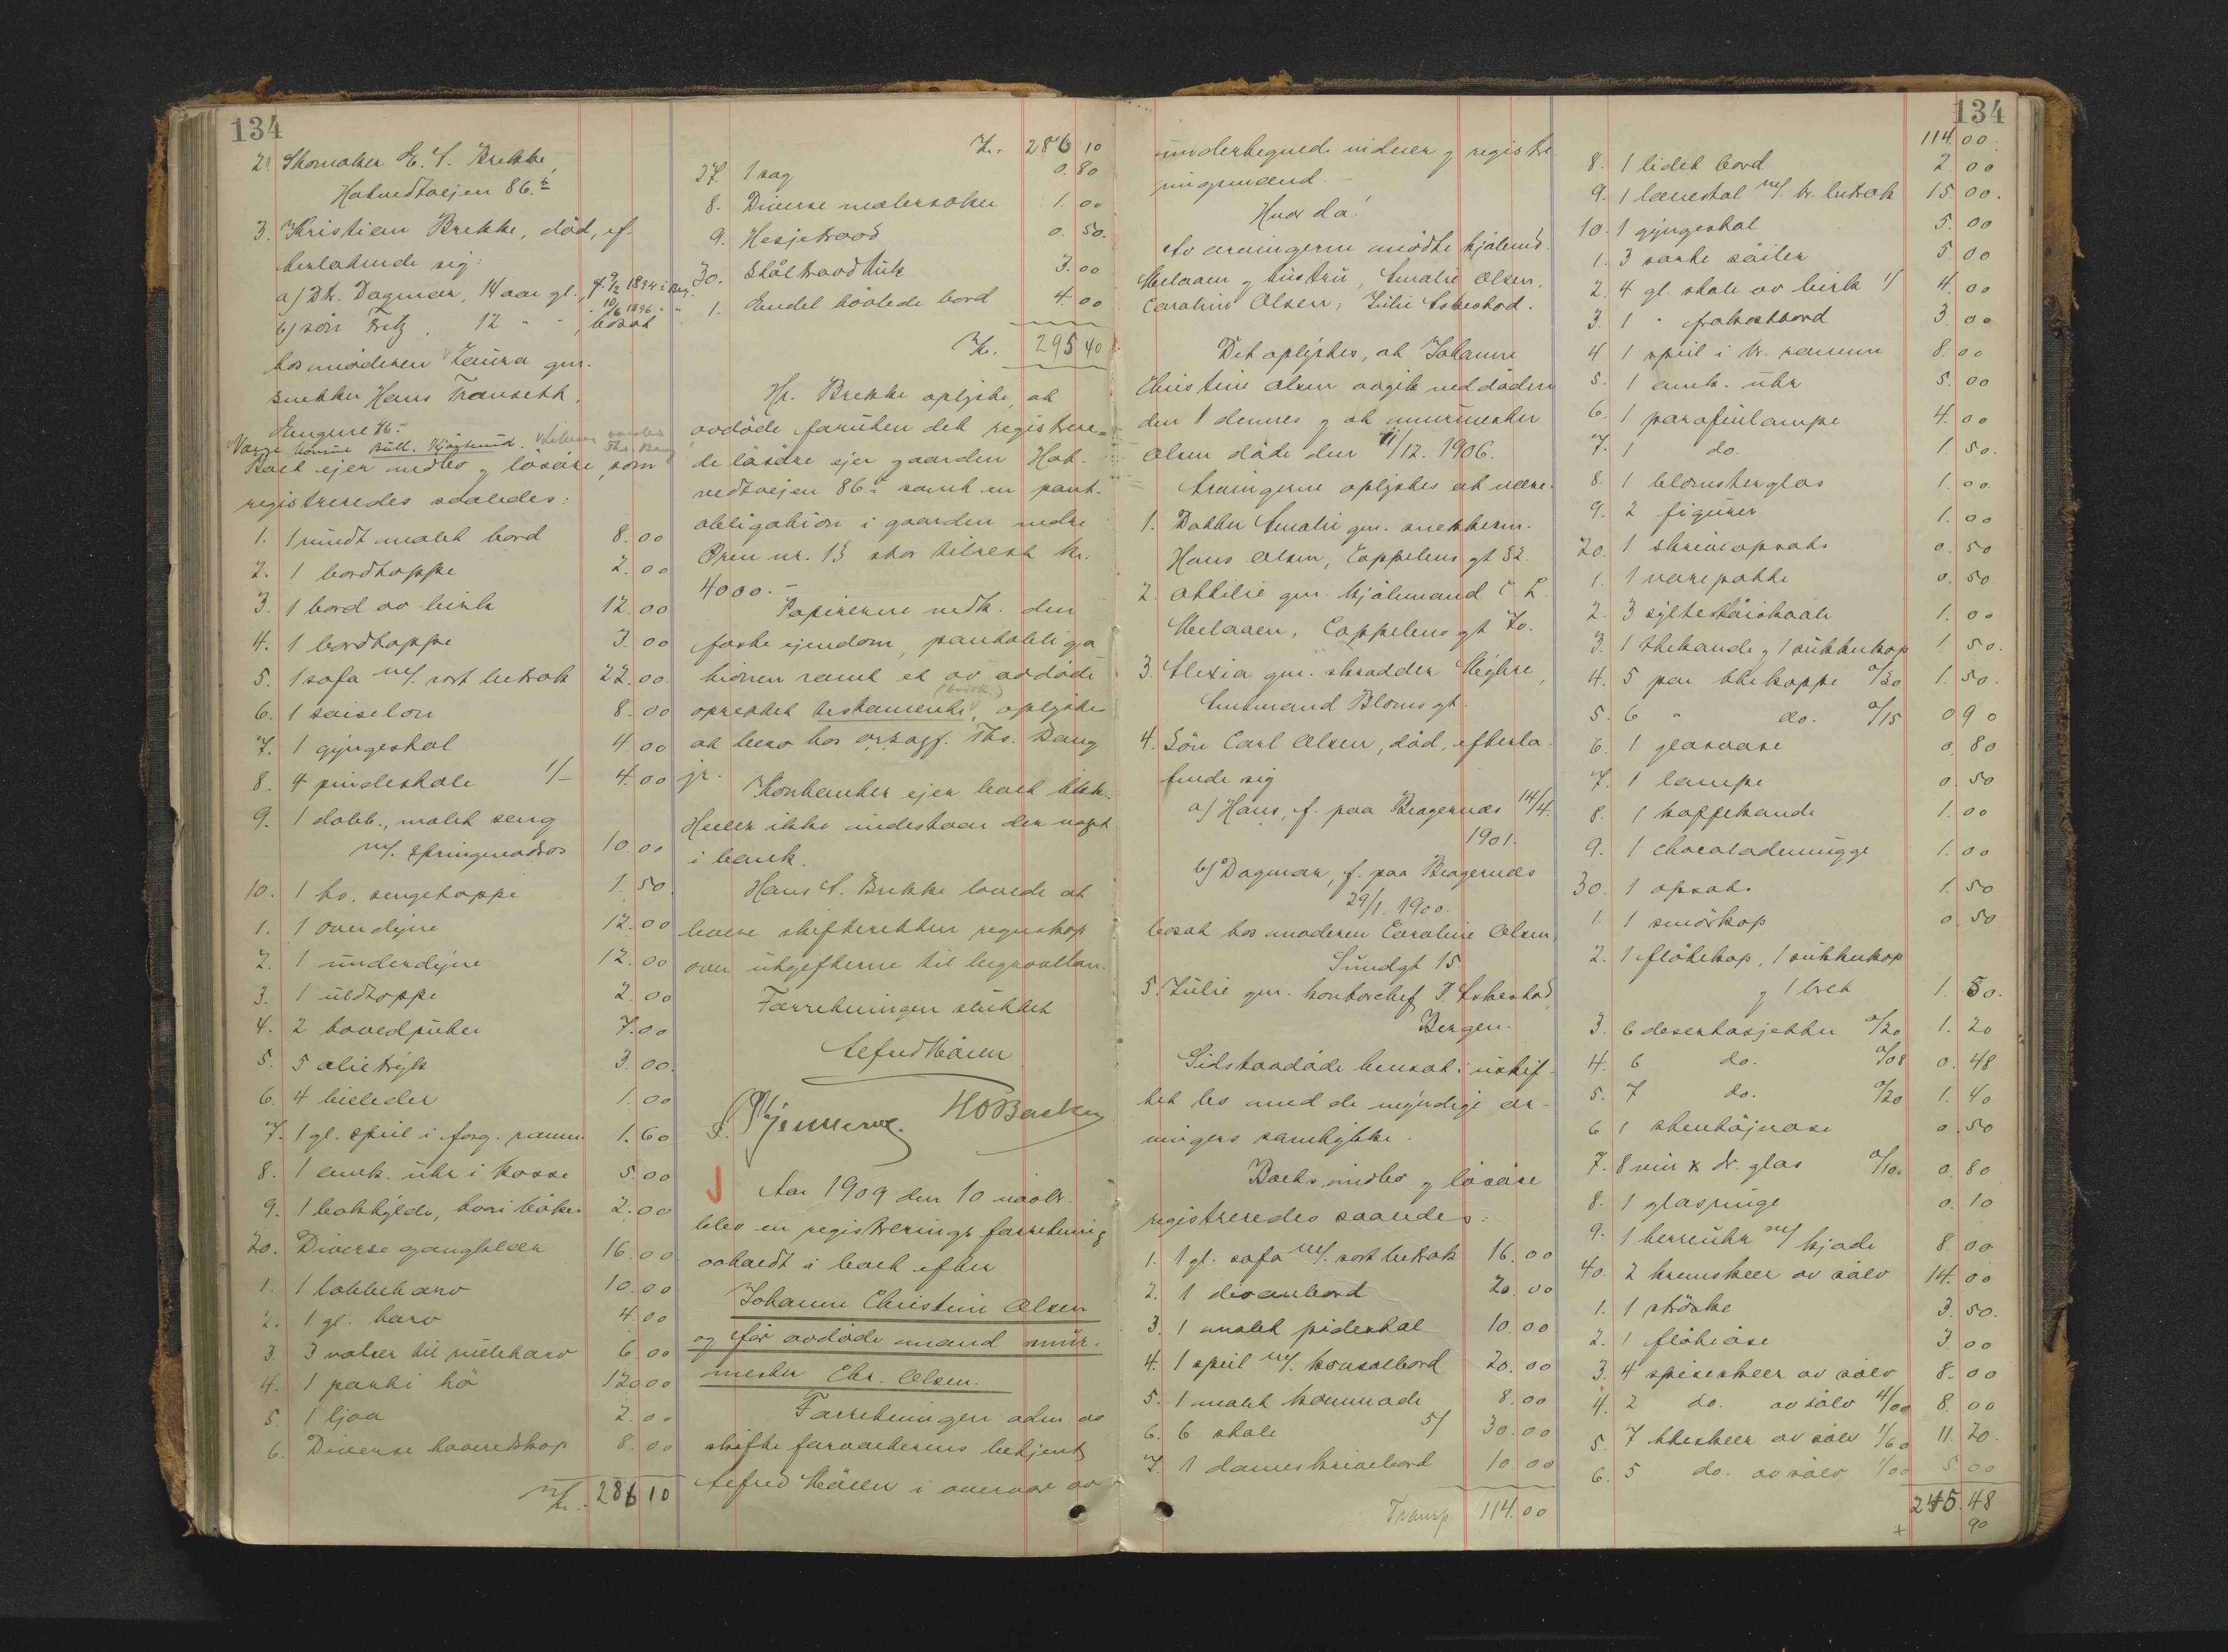 134
2. Skomaker H. S. Brekke,
Hotvedtveien 86.b
3. Kristian Brekke, död, ef-
terlatende sig:
a) Dt. Dagmar, 14 aar gl., f. 9/2 1894 i Brg.
b) sön Fritz, 12 " " " 10/6 1896 " "
bosat
hos moderen Laura gm.
snekker Hans Transeth,
Engene 86.
Bull. Kjösterud.
Boet eier indbo og lösöre, som
registreredes saaledes:
1. 1 rundt malet bord 8.00
2. 1 bordteppe 2.00
3. 1 bord av birk 12.00
4. 1 bordteppe 3.00
5. 1 sofa m/. sort betræk 22.00
6. 1 saiselon 8.00
7. 1 gyngestol 4.00
8. 4 pindestole 1/- 4.00
9. 1 dobb., malet seng
m/. springmadras 10.00
10. 1 ho. sengeteppe 1.50
1. 1 overdyne 12.00
2. 1 underdyne 12.00
3. 1 uldteppe 2.00
4. 2 hovedputer 7.00
5. 5 olietryk 3.00
6. 4 billeder 1.00
7. 1 gl. speil i forg. ramme 1.60
8. 1 amk. uhr i kasse 5.00
9. 1 bokhylde, hvori böker 2.00
20. Diverse gangklær 16.00
1. 1 labbeharv 10.00
2. 1 gl. harv 4.00
3. 3 valser til rulleharv 6.00
4. 1 parti hö 120.00
5. 1 ljaa 2.00
6. Diverse haveredskap 8.00
Kr. 286 10
Kr. 286 10
27. 1 sag 0.80
8. Diverse malersaker 1.00
9. Hesjetraad 0.50.
30. Ståltraadkurv 3.00
1. Endel hövlede bord 4.00
Kr. 295 40
Hr. Brekke oplyste, at
avdöde foruten det registrere-
de lösöre eier gaarden Hot-
vedtveien 86a samt en pant-
obligation i gaarden nedre
Øren nr. 13 stor tilrest kr.
4000.-
Papirerne vedk. den
faste eiendom, pantobliga
tionen samt et av avdöde
oprettet testamente, oplystes
at bero hos orsagf. Ths. Bang
jr.
Kontanter eier boet ikke.
Heller ikke indestaar der noget
i bank.
Hans S. Brekke lovede at
levere skifteretten regnskap
over utgifterne til begravelsen.
Forretningen sluttet
Alfred Möller
H O Backer
Aar 1909 den 10 novbr.
blev en registrerings forretning
avholdt i boet efter
Johanne Christine Olsen
og för avdöde mand mur-
mester Chr. Olsen.
Forretningen adm. av
skifteforvalterens betjent
Alfred Möller i overvær av
134
undertegnede vidner og registre
ringsmænd.-
Hvor da!
Av arvingerne mödte hjulmd.
Melaaen og hustru, Amalie Olsen,
Caroline Olsen, Julie Askestad.
Det oplystes, at Johanne
Christine Olsen avgik ved döden
den 1 dennes og at murmester
Olsen döde den 11/12. 1906.
Arvingerne oplystes at være:
1. Datter Amalie gm. snekkerm.
Hans Olsen, Cappelens gt 32.
2. Ottilie gm. hjulmand C. L.
Melaaen, Cappelens gt 70.
3. Alexia gm. skrædder Myhre,
Amtmand Bloms gt.
4. Sön Carl Olsen, död, efterla-
tende sig
a) Hans, f. paa Bragernæs 14/4.
1901.
b) Dagmar, f. paa Bragernæs
29/1. 1900.
bosat hos moderen Caroline Olsen,
Sundgt 15.
5. Julie gm. kontorchef P. Askestad
Bergen.
Sidstavdöde hensat i uskif-
tet bo med de myndige ar-
vingers samtykke.
Boets indbo og lösöre
registreredes saaledes:
1. 1 gl. sofa m/. sort betræk 16.00
2. 1 divanbord 20.00
3. 1 malet pidestal 10.00
4. 1 speil m/. konsolbord 20.00
5. 1 malet kommode 8.00
6. 6 stole 5/ 30.00
7. 1 dameskrivebord 10.00
Transp 114.00
114.00
8. 1 lidet bord 2.00
9. 1 lænestol m/. br. betræk 15.00.
10. 1 gyngestol 5.00
1. 3 sorte söiler 5.00
2. 4 gl. stole av birk 1/ 4.00
3. 1 " frokostbord 3.00
4. 1 speil i br. ramme 8.00
5. 1 amk. uhr 5.00
6. 1 parafinlampe 4.00
7. 1 do. 1.50.
8. 1 blomsterglas 1.00
9. 2 figurer 1.00
20. 1 skriveopsats 0.50
1. 1 varepotte 0.50
2. 3 syltetöiskaale 1.00
3. 1 thekande og 1 sukkerkop 1.50.
4. 5 par thekopper a/30 1.50.
5. 6 " do. a/15 0 90
6. 1 glasvase 0.80
7. 1 lampe 0.50
8. 1 kaffekande 1.00
9. 1 chocolademugge 1.00
30. 1 opsats 1.50
1. 1 smörkop 0.50
2. 1 flötekop, 1 sukkerkop
og 1 bret 1.50.
3. 6 desertasjetter a/20 1.20
4. 6 do. a/08 0.48
5. 7 do. a/20 1.40
6 1 stentöjvase 0.50
7. 8 vin & dr. glas a/10. 0.80
8. 1 glasringe 0.10
9. 1 herreuhr m/ kjæde 8.00
40. 2 kremskeer av sölv 14.00
1. 1 ströske 3.50.
2. 1 flöteöse 3.00
3. 4 spiseskeer av sölv 8.00
4. 2 do. av sölv 4/00 8.00
5. 7 theskeer av sölv 1/60 11.20.
6. 5 do. av sölv 1/00 5.00
245.48
+ 90